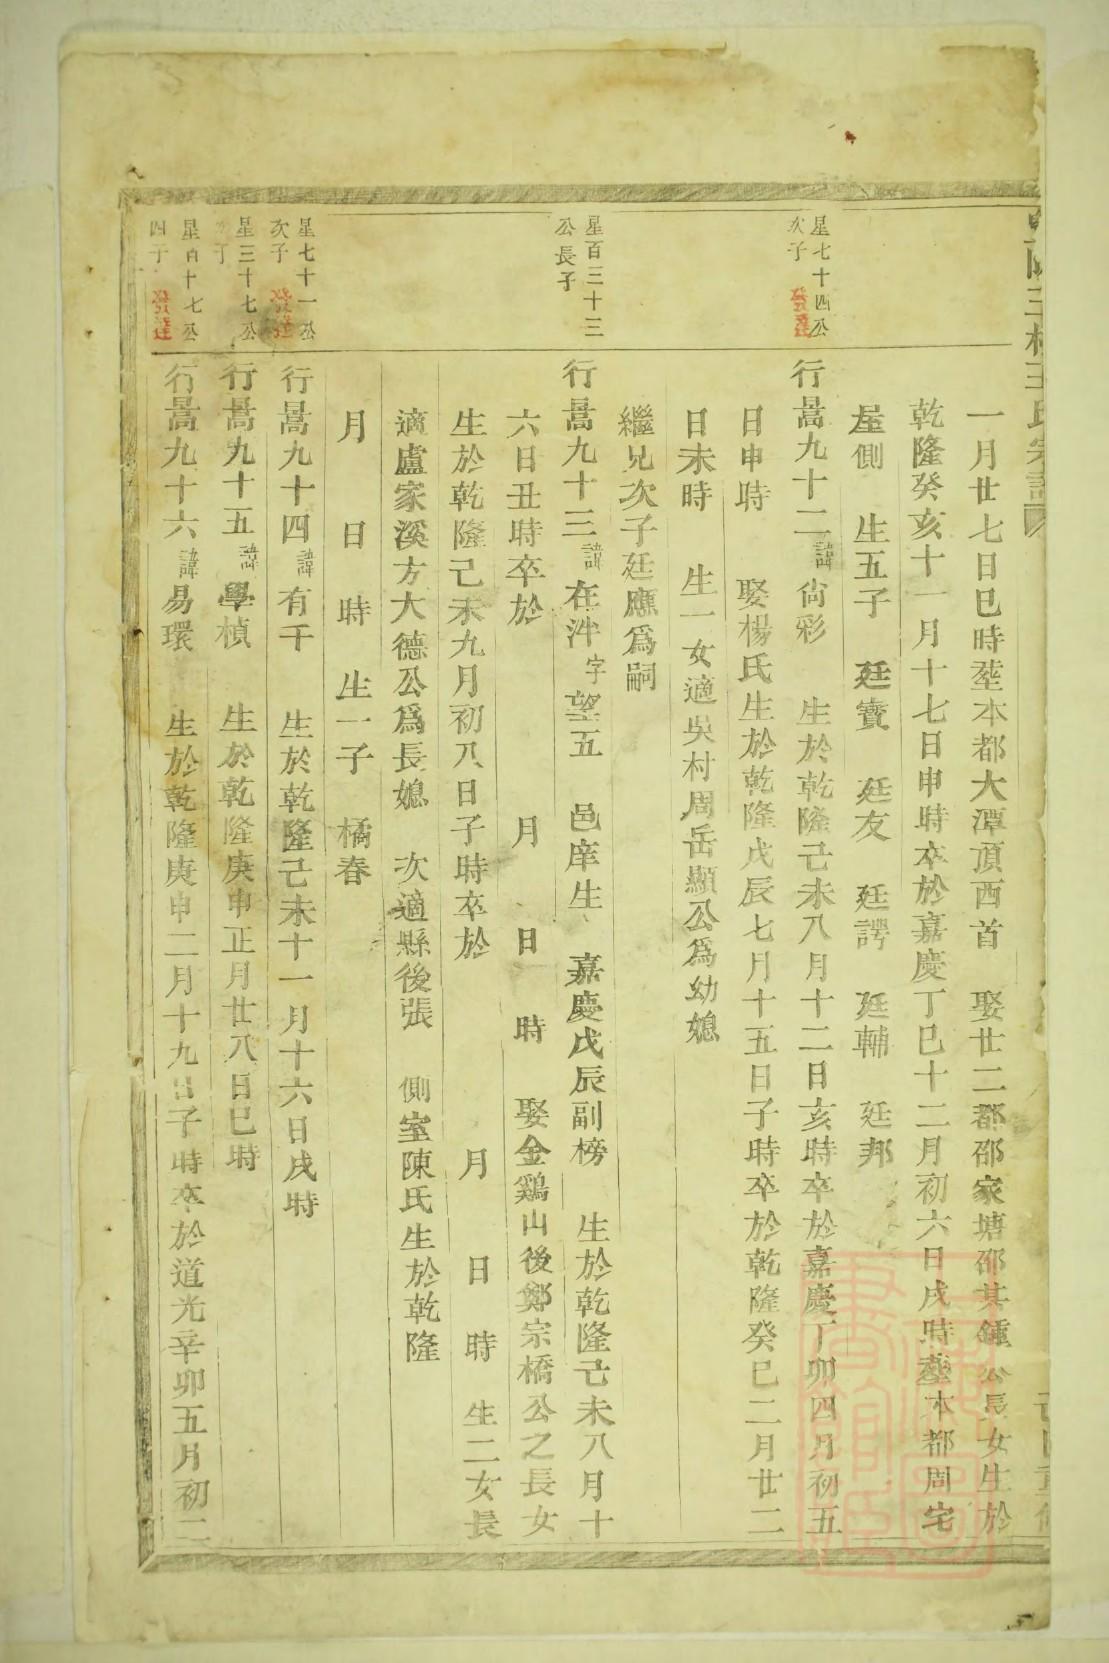 王氏宗譜
一月廿七日巳時塟本都大潭頂西首　娶廿二都邵家塘邵其鍾公長女生於
乾隆癸亥十一月十七日申時卒於嘉慶丁巳十二月初六日戌時塟本都周宅
屋側　生五子　廷寶　廷友　廷諤　廷輔　廷邦
星七十四公
次子
發達
行暠九十二諱尙彩　生於乾隆己未八月十二日亥時卒於嘉慶丁卯四月初五
日申時　娶楊氏生於乾隆戊辰七月十五日子時卒於乾隆癸巳二月廿二
日未時　生一女適吳村周岳顯公爲幼媳
繼兄次子廷應爲嗣
星百三十三
公長子
行暠九十三諱在泮字望五　邑庠生　嘉慶戊辰副榜　生於乾隆己未八月十
六日丑時卒於　月　日　時　娶金鷄山後鄭宗橋公之長女
生於乾隆己未九月初八日子時卒於　月　日　時　生二女長
適盧家溪方大德公爲長媳　次適縣後張　側室陳氏生於乾隆
月　日　時　生一子　橘春
星七十一公
次子
發達
行暠九十四諱有干　生於乾隆己未十一月十六日戌時
星三十七公
子
行暠九十五諱學楨　生於乾隆庚申正月廿八日巳時
星百十七公
四子
發達
行暠九十六諱易環　生於乾隆庚申二月十九日子時卒於道光辛卯五月初二